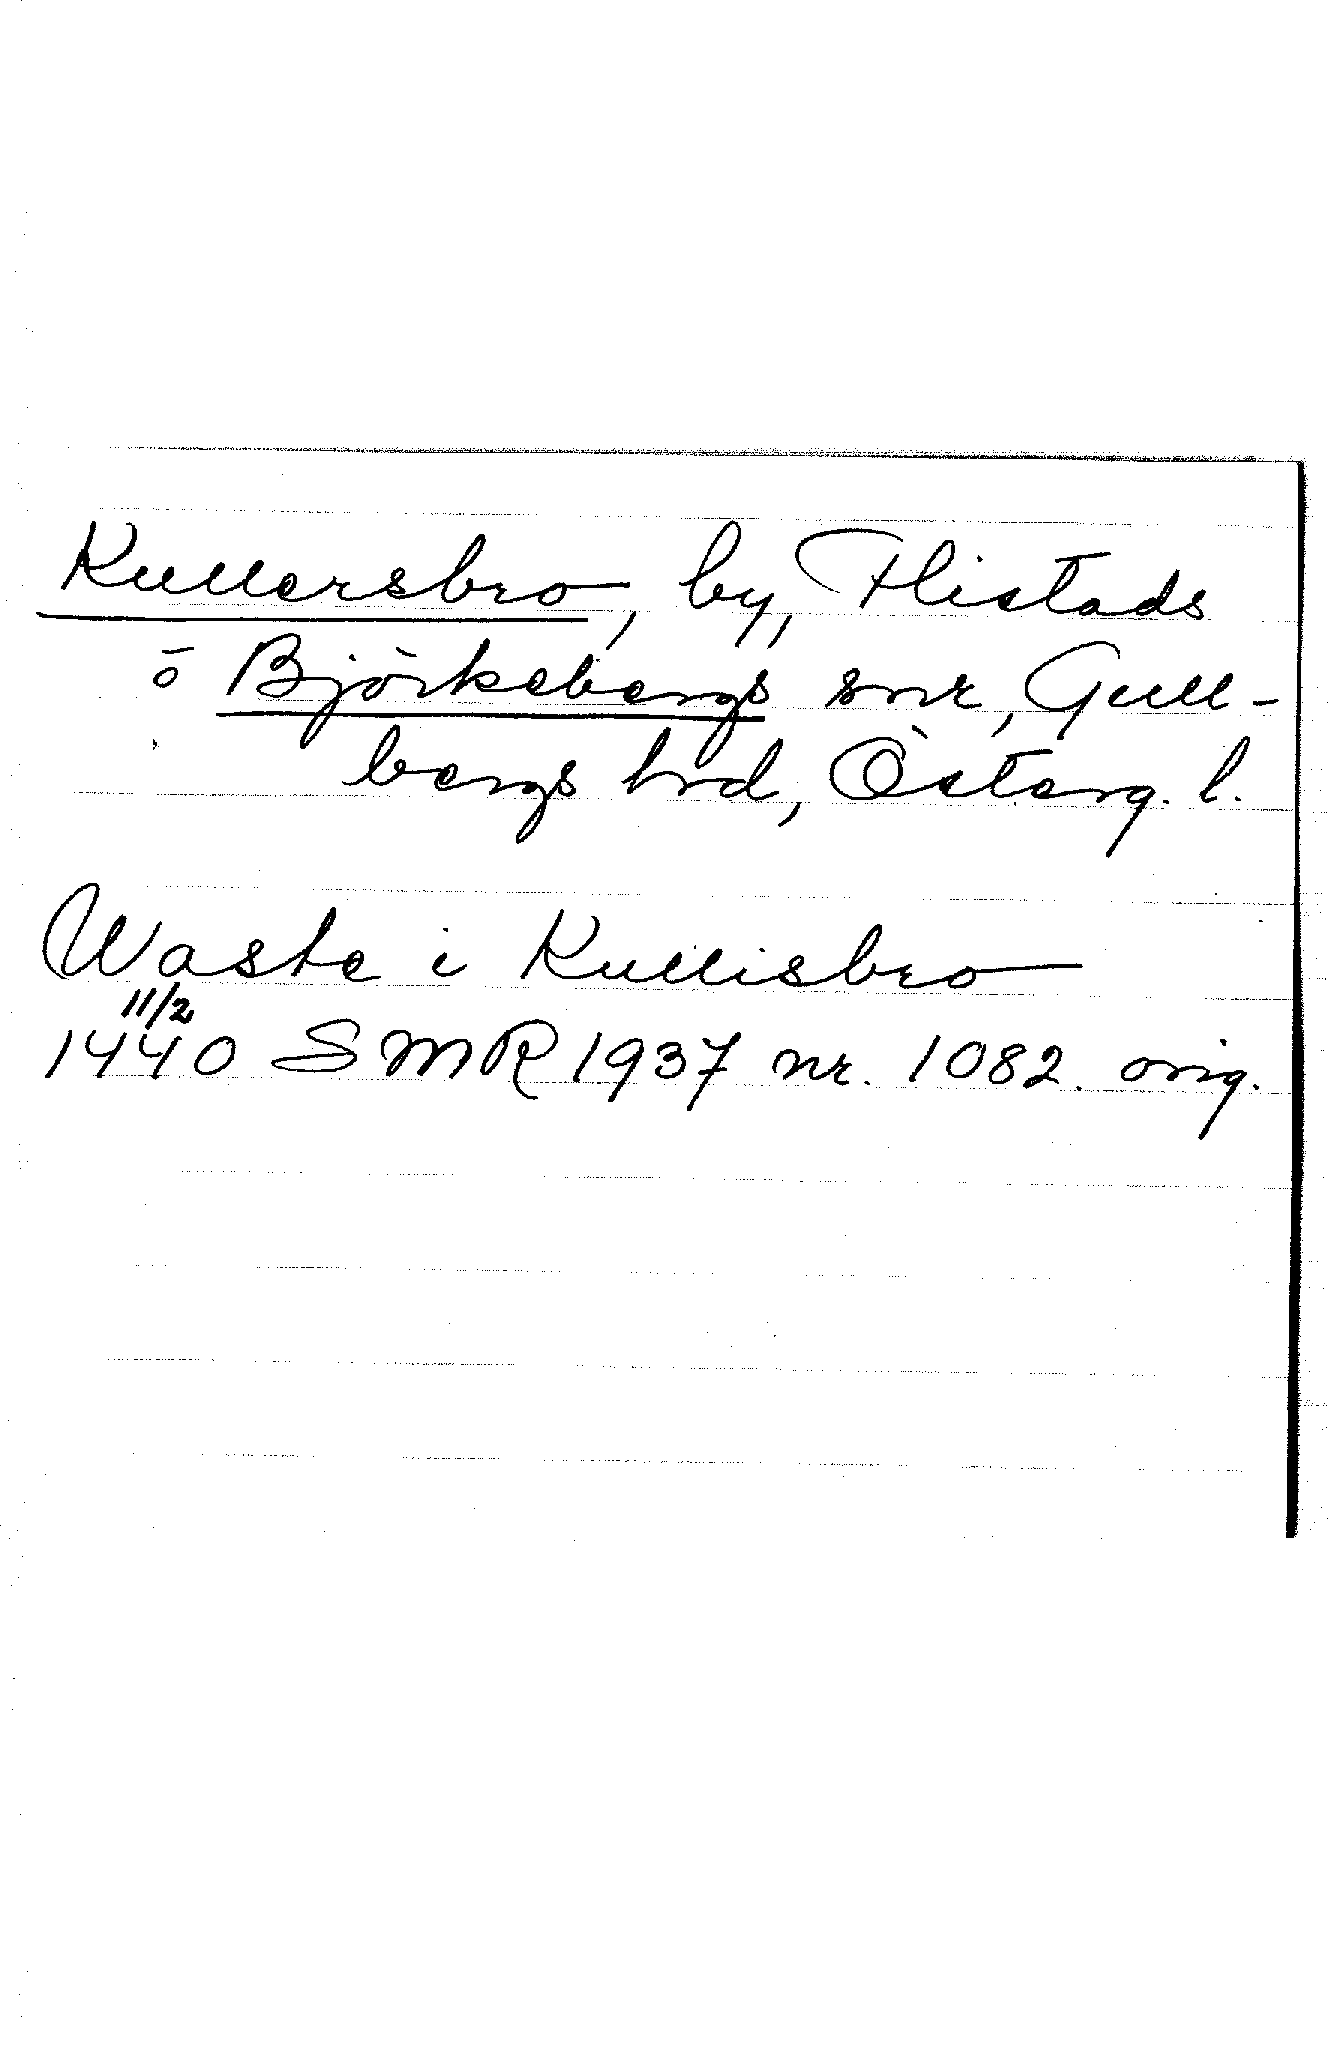 Kullersbro, by, Flistads
o Björkebergs snr, Gull-
bergs hrd, Österg. l.
Waste i Kullisbro
11/2
1440 SMR 1937 nr. 1082. orig.